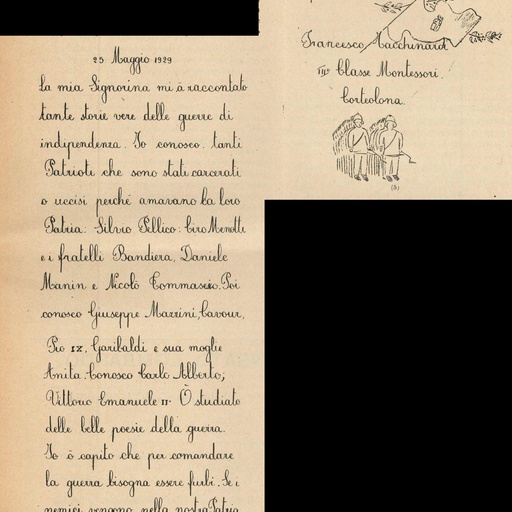 25 Maggio 1929
La mia Signorina mi à raccontato
tante storie vere delle guerre di
indipendenza. Io conosco tanti
Patrioti che sono stati carcerati
o uccisi perché amavano la loro
Patria: Silvio Pellico: Ciro Menotti
e i fratelli Bandiera, Daniele
Manin e Nicolò Tommaseo. Poi
conosco Giuseppe Mazzini, Cavour,
Pio IX, Garibaldi e sua moglie
Anita. Conosco Carlo Alberto;
Vittorio Emanuele II. Ò studiato
delle belle poesie della guerra.
Io ò capito che per comandare
la guerra bisogna essere furbi. Se i
nemici vengono nella nostra Patria
Francesco Macchinardi
IIIª Classe Montessori.
Corteolona.
(3)